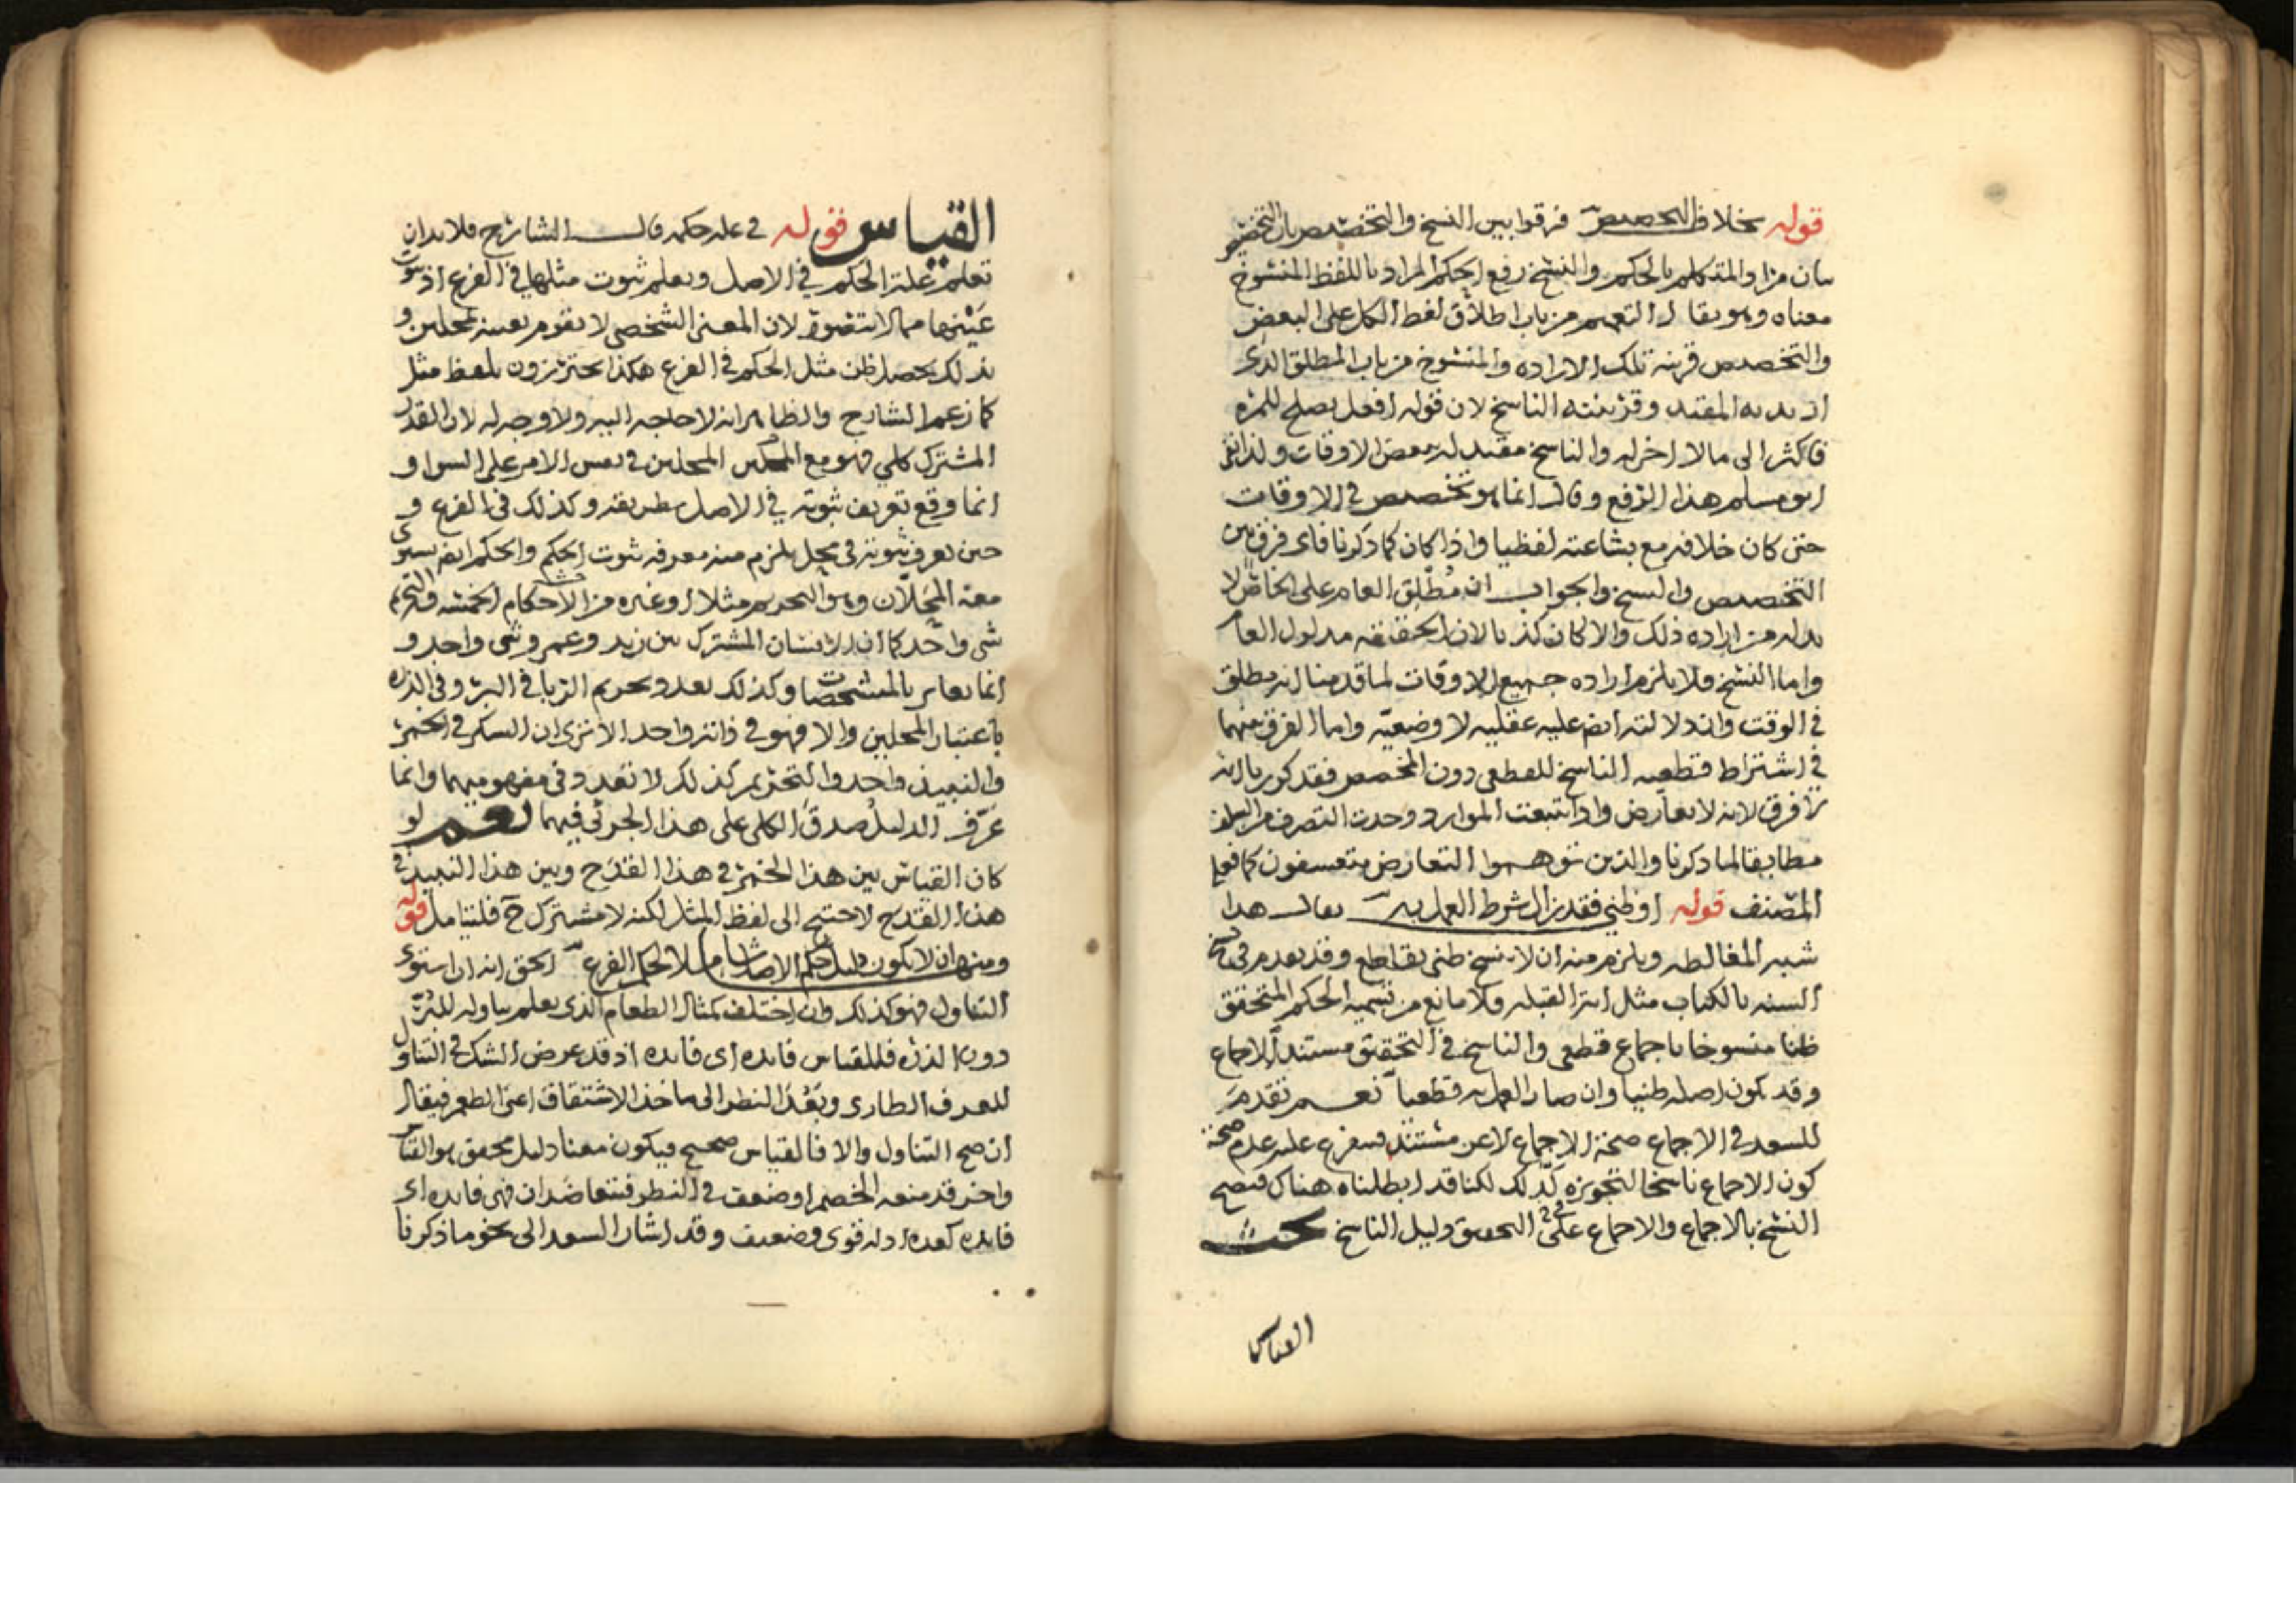 قوله بخلاف التخصيص فرقوا بين النسخ والتخصيص بان التخصيص
بيان مراد المتكلم بالحكم والنسخ رفع الحكم المراد باللفظ المنسوخ
معناه وهو يقال ان التعميم من باب اطلاق لفظ الكل على البعض
والتخصيص قرينة تلك الارادة والمنسوخ من باب المطلق الذى
اريد به المقيد وقرينته الناسخ لان قوله افعل يصلح للمرة
فاكثر الى مالا اخر له والناسخ مقيد له ببعض الاوقات ولذا انكر
ابو مسلم هذا الرفع وقال انما هو تخصيص فى الاوقات
حتى كان خلافه مع بشاعته لفظيا واذا كان كما ذكرنا فاى فرق بين
التخصيص والنسخ والجواب ان مطلق العام على الخاص لا
بد له من ارادة ذلك والا لكان كذبا لان الحقيقة مدلول العام
واما النسخ فلا يلزم ارادة جميع الاوقات لما قدمنا انه مطلق
فى الوقت وان دلالته ايض عليه عقليه لا وضعيه واما الفرق بينهما
فى اشتراط قطعيه الناسخ للقطعى دون المخصص فقد كور بانه
لا فرق لانه لا تعارض واذا تتبعت الموارد وجدت التصرف من
مطابقا لما ذكرنا والذين توهموا التعارض يتعسفون كما فعل
المصنف قوله او ظنى فقد زال شرط العمل به يقال هذا
شبه المغالطه ويلزم منه ان لا ينسخ ظنى بقاطع وقد تقدم فى نسخ
السنه بالكتاب مثل امر القبله ولا مانع من تسميه الحكم المتحقق
ظنا منسوخا باجماع قطعى والناسخ فى التحقيق مستند الاجماع
وقد يكون اصله ظنيا وان صار العمل به قطعيا نعم تقدم
للسعد فى الاجماع صحة الاجماع لا عن مستند فيتفرع عليه عدم صحة
كون الاجماع ناسخا لتجويزه كذلك لكنا قد ابطلناه هناك فيصح
النسخ بالاجماع والاجماع على التحقيق دليل الناسخ بحث
القياس
القياس قوله فى علة حكمه قال الشارح فلا بد ان
تعلم علة الحكم فى الاصل ويعلم ثبوت مثلها فى الفرع اذ ثبوت
عينها مما لا يتصور لان المعنى الشخصى لا يقوم بعينه لمحلين و
بذلك يحصل ظن مثل الحكم فى الفرع هكذا يحترزون بلفظ مثل
كما زعم الشارح والظاهر انه لا حاجه اليه ولا وجه له لان القدر
المشترك كلى فهو مع المحلين فى نفس الامر على السوا و
انما وقع تعريف ثبوته فى الاصل بطريقه وكذلك فى الفرع و
حين تعرف ثبوته فى محل يلزم منه معرفه ثبوت الحكم والحكم ايض يستوى
معه المحلان وهو التحريم مثلا او غيره من الاحكام الخمسه والتحريم
شى واحد كما ان الانسان المشترك بين زيد وعمرو شى واحد و
انما تغاير بالمشخصات وكذلك تعدد تحريم الربا فى البر وفى الذره
باعتبار المحلين والا فهو فى ذاته واحد الا ترى ان السكر فى الخمر
والنبيذ واحد والتحريم كذلك لا تعدد فى مفهوميهما وانما
عرف الدليل صدق الكلى على هذا الجزئى فيهما نعم لو
كان القياس بين هذا الخمر فى هذا القدح وبين هذا النبيذ فى
هذا القدح لاحتيج الى لفظ المثل لكنه لا مشترك ح فليتامل قوله
ومنها ان لا يكون دليل حكم الاصل شاملا لحكم الفرع الحق انه ان استوى
التناول فهو كذلك وان اختلف كمثال الطعام الذى يعلم تناوله للبر
دون الذره فللقياس فايده اى فايده اذ قد عرض الشك فى التناول
للعرف الطارى وبَعُدَ النظر الى ماخذ الاشتقاق اعنى الطعم فيقال
ان صح التناول والا فالقياس صحيح فيكون معنا دليل محقق هو القياس
واخر قد منعه الخصم او ضعف فى النظر فيتعاضدان فهى فايده اى
فايده كعدة ادله قوى وضعيف وقد اشار السعد الى نحو ما ذكرنا